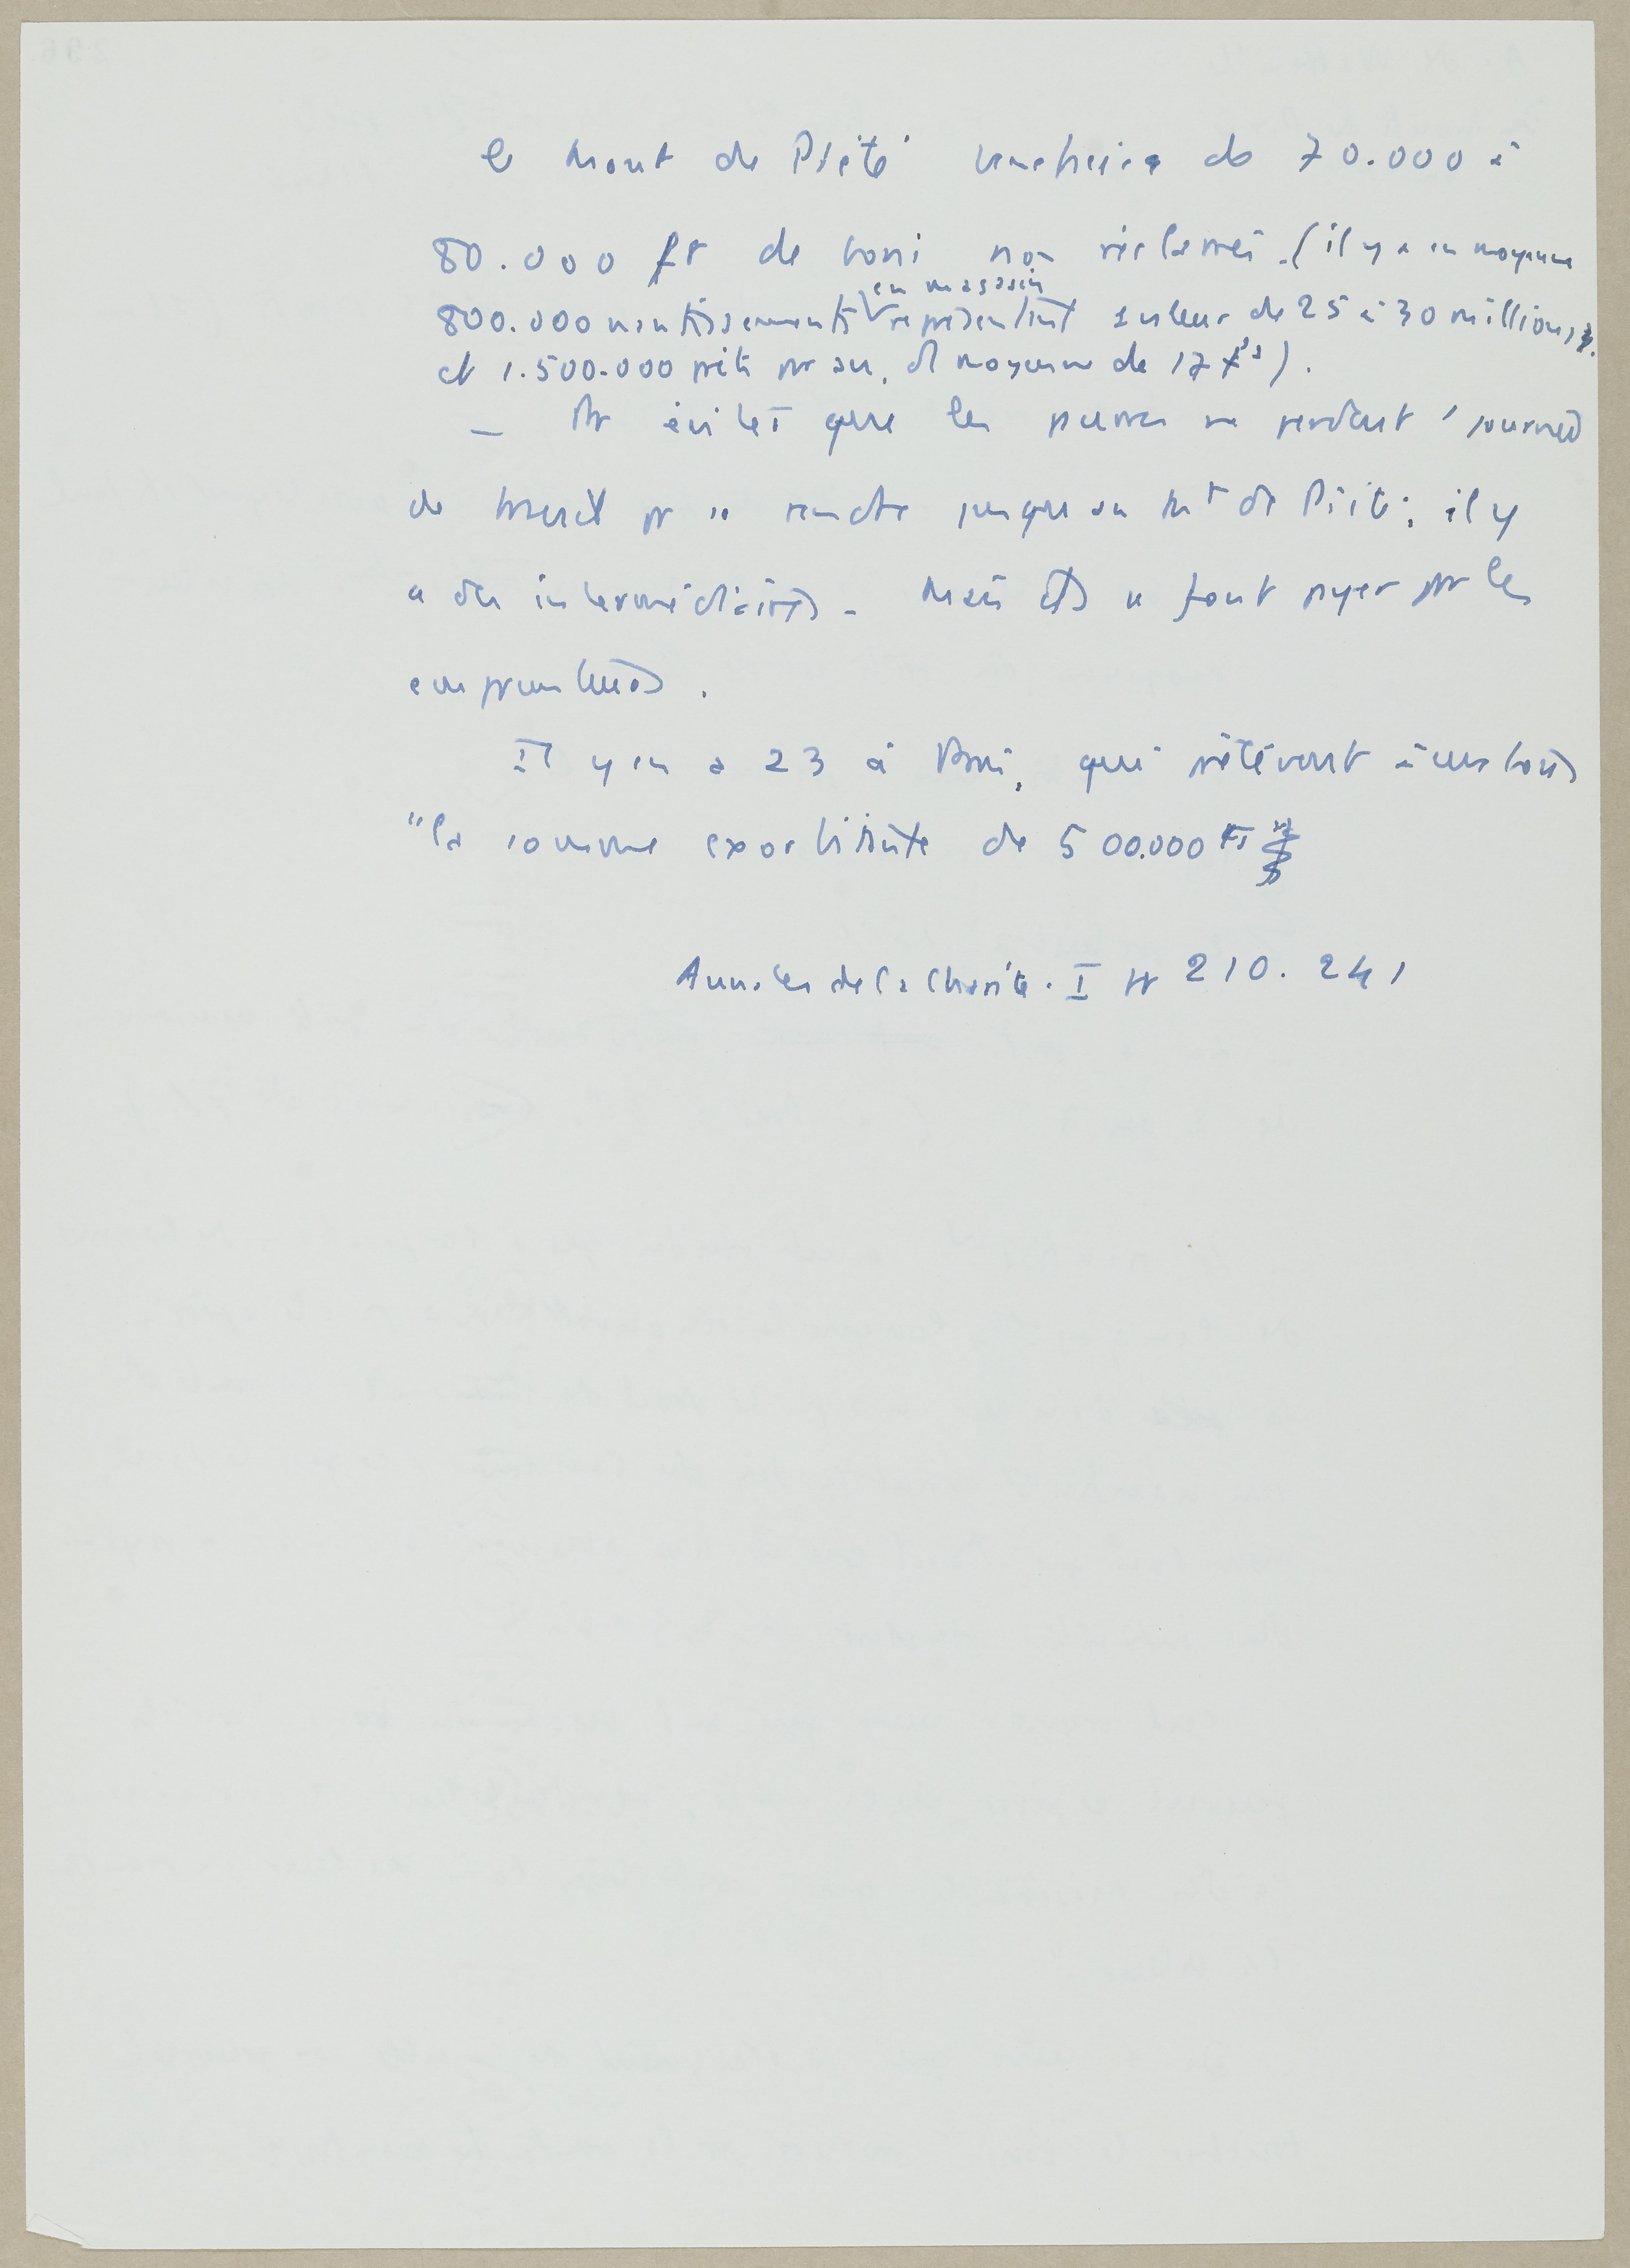 le Mont de Piété bénéficie de 70.000 à
80.000 fr de boni non réclamés. (il y a en moyenne
en magasin
800.000 nantissements représentant valeur de 25 à 30 millions,
et 1.500.000 prêts par an, d moyenne de 17 frs).
_ Pr éviter que les pauvres ne perdent 1 journée
de travail pr se rendre jusqu'au Mt de Piété, il y
a des intermédiaires. Mais ils se font payer par les
emprunteurs.
Il y en a 23 à Paris, qui prélèvent à eux tous
"la somme exorbitante de 500.000 frs"
Annales de la Charité. I pp 210. 241